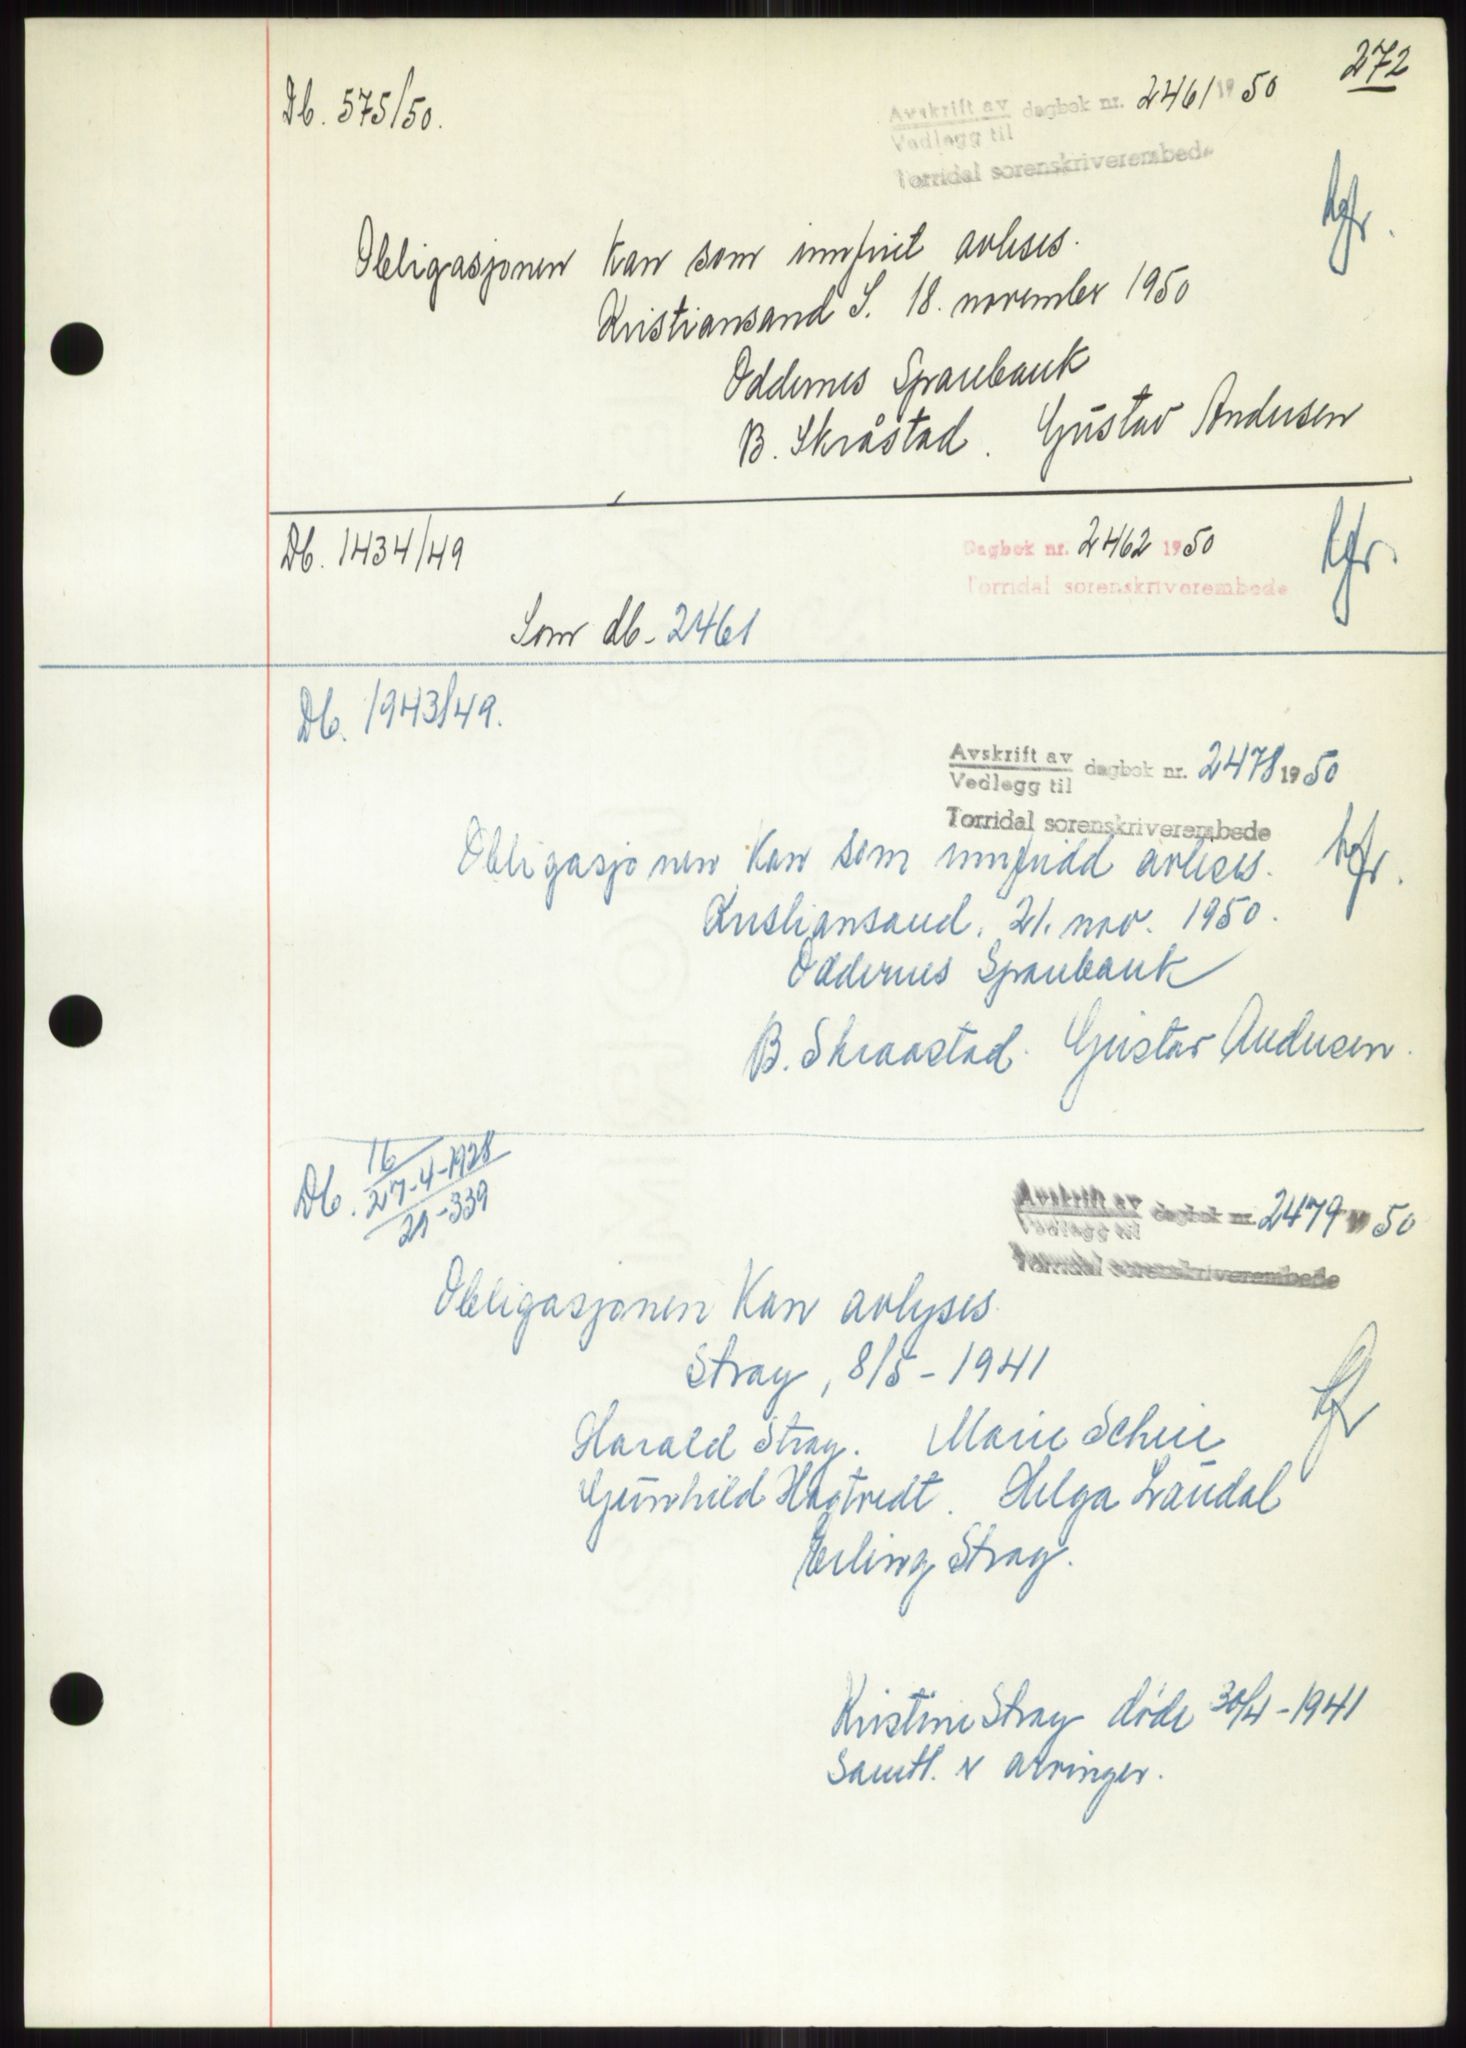 272
Db. 575/50.
Avskrift av dagbok nr. 2461 1950
Vedlegg til
Torridal sorenskriverembede
kfr.
Obligasjonen kan som innfriet avleses.
Kristiansand S. 18. november 1950
Oddernes Sparebank
B. Skråstad. Gustav Andersen
Db. 1434/49
Dagbok nr. 2462 1950
Torridal sorenskriverembede
kfr.
Som db. 2461
Db. 1943/49.
Avskrift av dagbok nr. 2478 1950
Vedlegg til
Torridal sorenskriverembede
Obligasjonen kan som innfridd avleses. kfr.
Kristiansand, 21. nov. 1950.
Oddernes Sparebank
B. Skraastad. Gustav Andersen.
Db. 16
27-4-1928
21-339
Avskrift av dagbok nr. 2479 1950
Vedlegg til
Torridal sorenskriverembede
Obligasjonen kan avlyses.
Stray, 8/5-1941
kfr
Harald Stray. Marie Scheie
Gunhild Hagtvedt. Helga Laudal
Erling Stray.
Kristine Stray døde 30/4-1941
Samtl. arvinger.